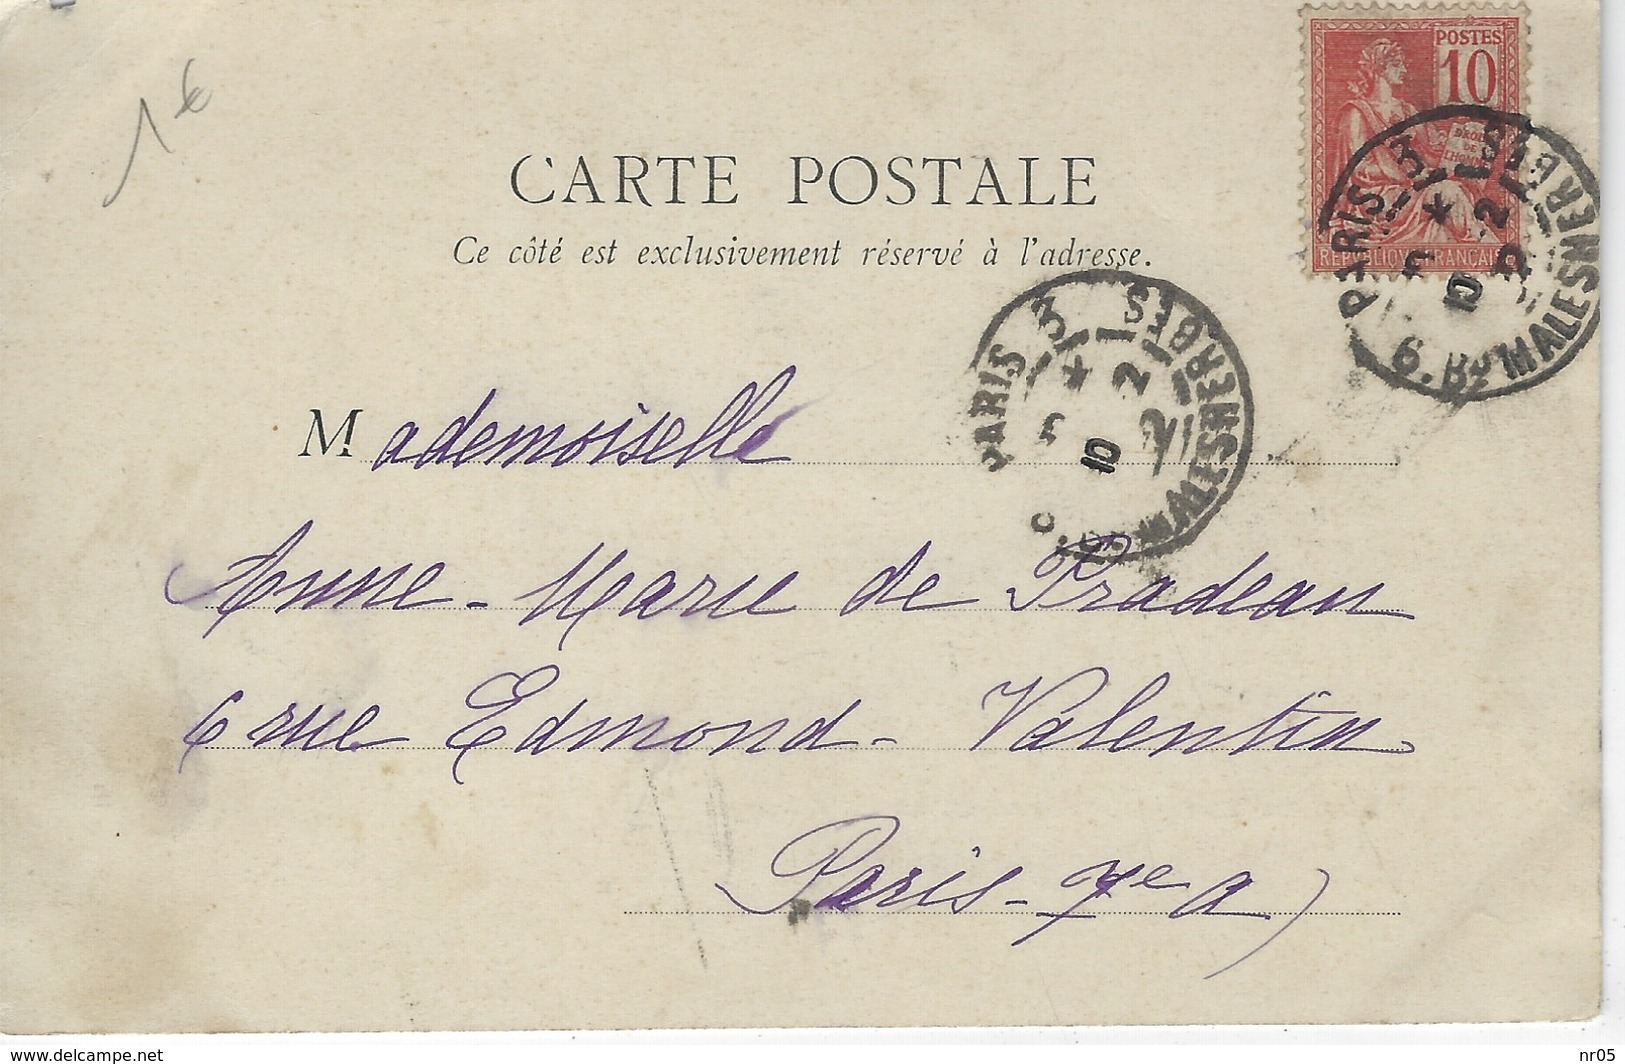 1€
POSTES
10
DROITS
DE
L'HOMME
REPUBLIQUE FRANÇAISE
CARTE POSTALE
Ce côté est exclusivement réservé à l'adresse.
PARIS 3
6. Bd MALESHERBES
10
PARIS 3
MALESHERBES
10
Mademoiselle
Anne-Marie de Pradeau
6 rue Edmond-Valentin
Paris-7e a)
http://www.delcampe.com
nr05